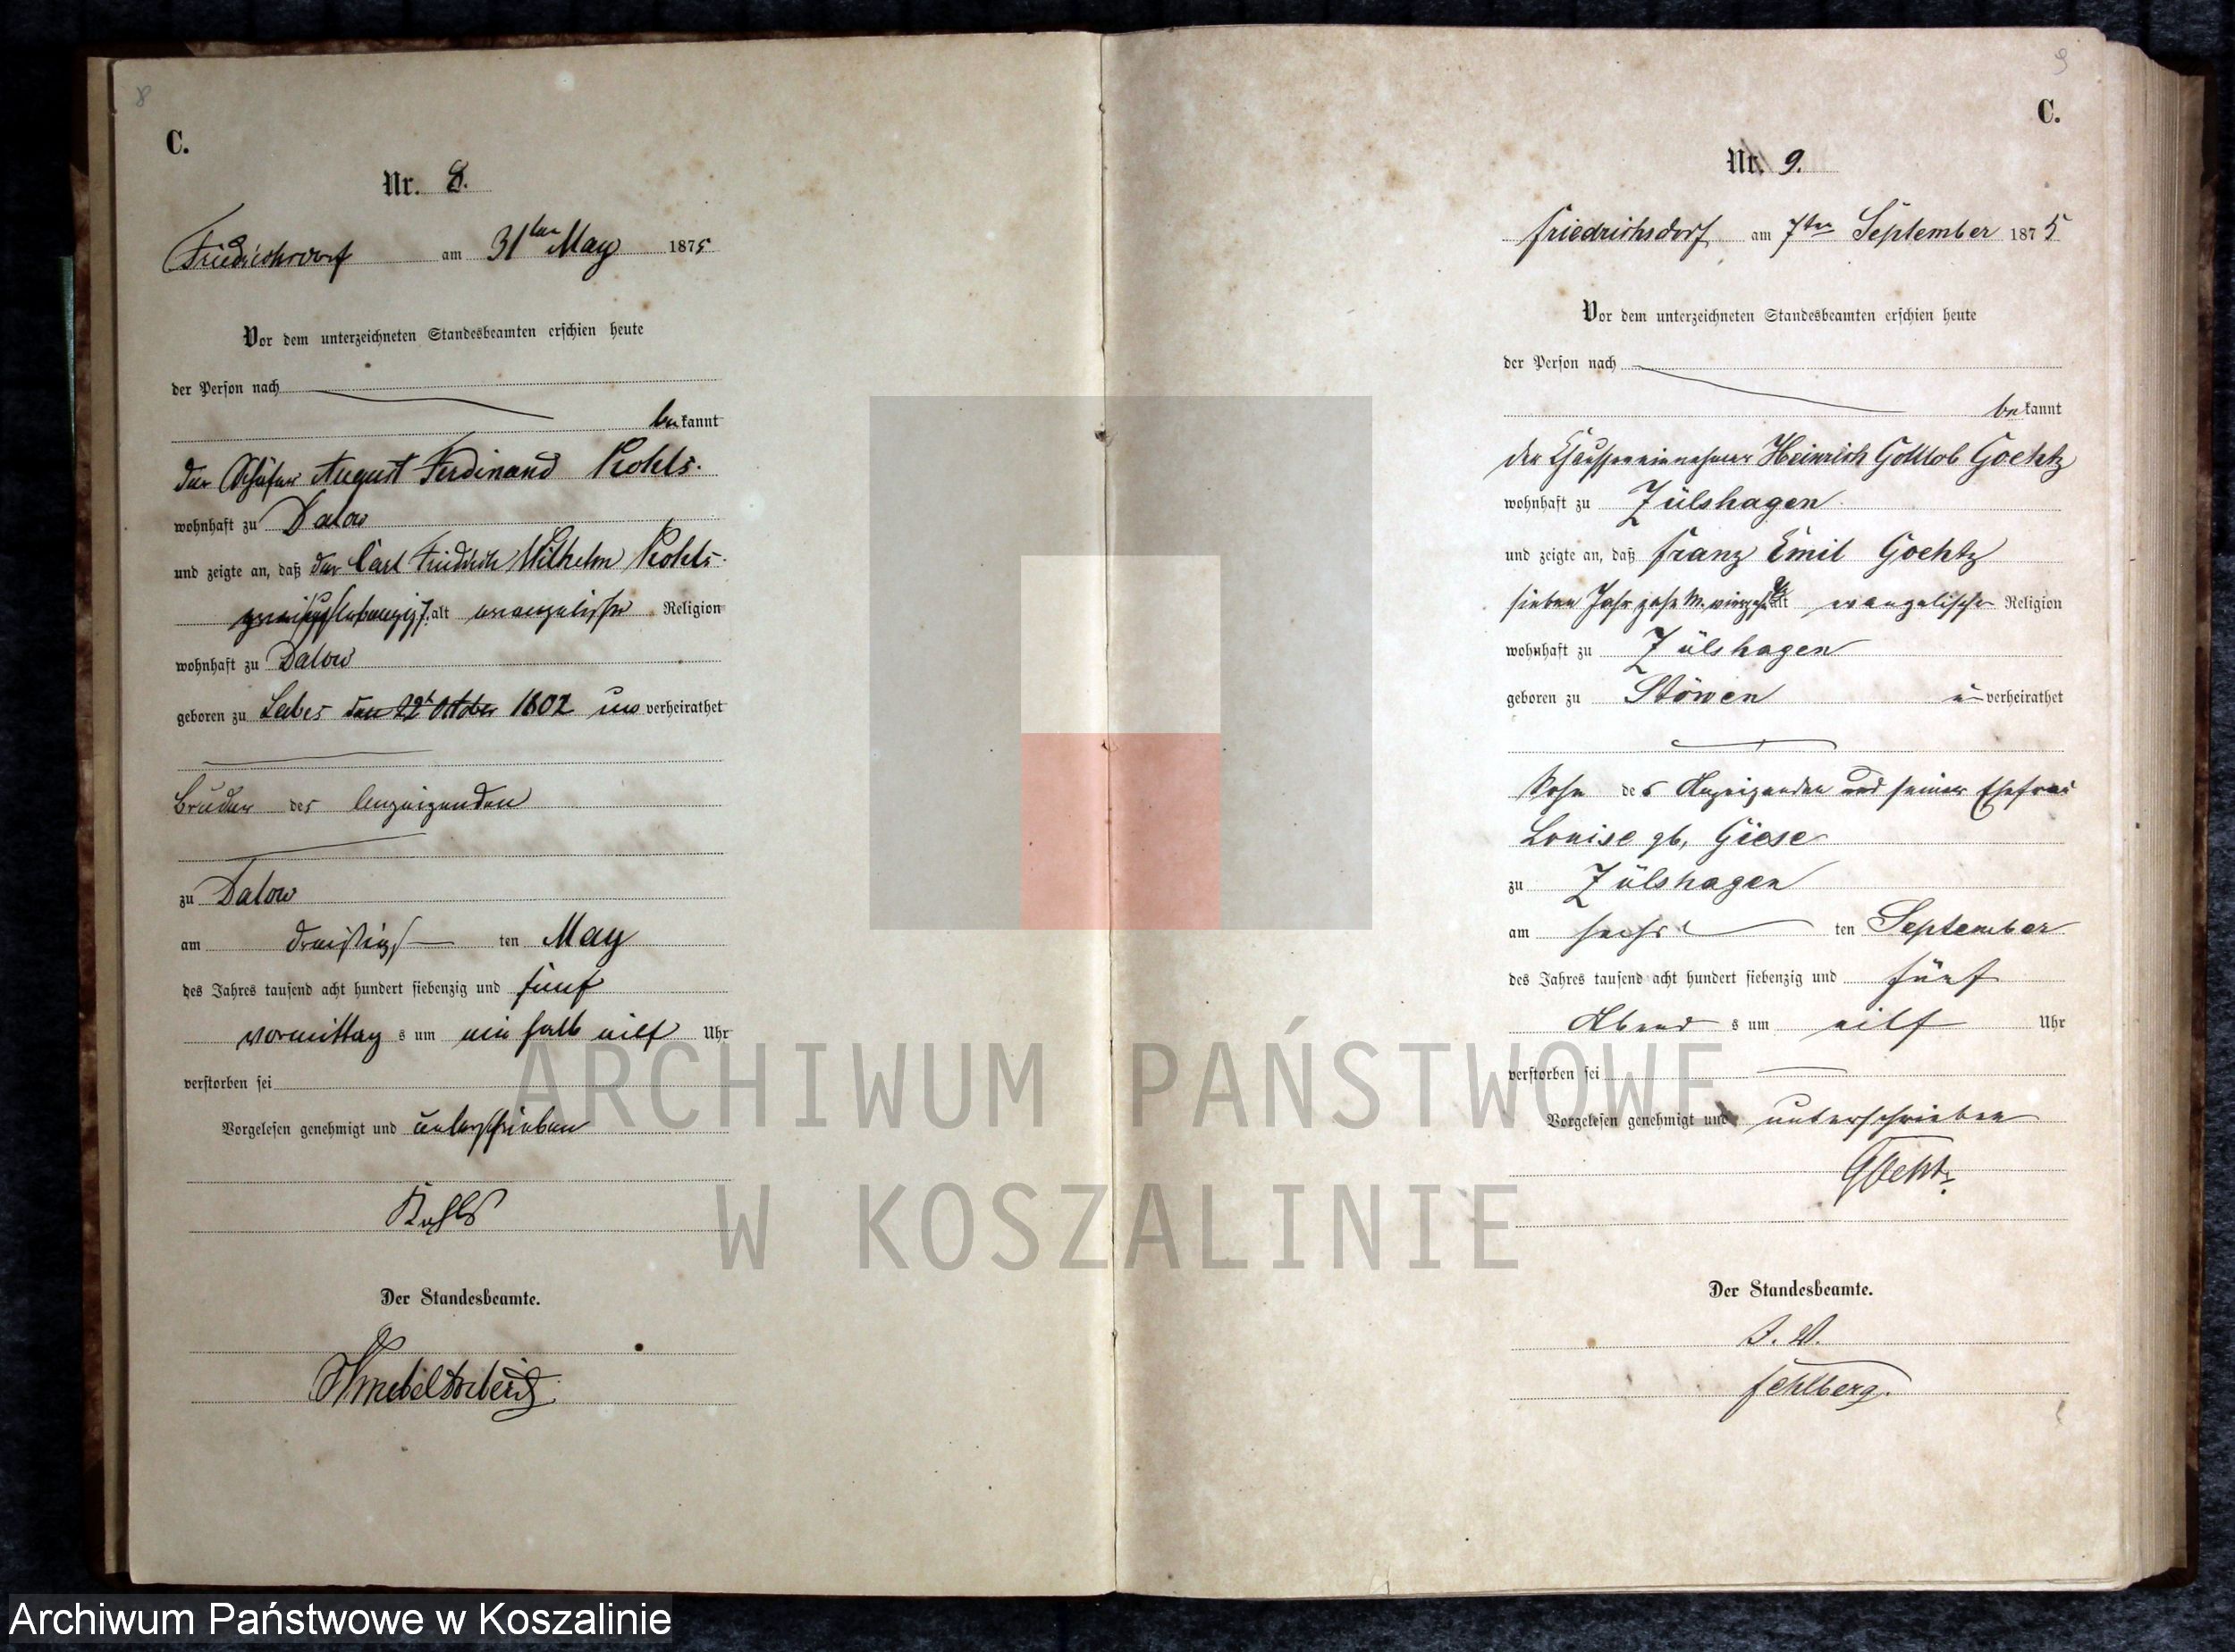 8
C.
Nr. 8.
Friedrichsdorf am 31ten May 1875
Vor dem unterzeichneten Standesbeamten erschien heute
der Person nach
bekannt
der Schäfer August Ferdinand Kohls.
wohnhaft zu Dalow
und zeigte an, daß der Carl Friedrich Wilhelm Kohls
alt evangelischer Religion
wohnhaft zu Dalow
geboren zu Labes den 22t October 1802 un verheirathet
Bruder des Anzeigenden
zu Dalow
am dreißigs ten May
des Jahres tausend acht hundert siebenzig und fünf
vormittag s um ein halb eilf Uhr
verstorben sei
Vorgelesen genehmigt und unterschrieben
Kohls
Der Standesbeamte.
9
C.
Nr. 9.
Friedrichsdorf am 7ten September 1875
Vor dem unterzeichneten Standesbeamten erschien heute
der Person nach
bekannt
der Chausseeeinnehmer Heinrich Gottlob Goehtz
wohnhaft zu Zülshagen
und zeigte an, daß Franz Emil Goehtz
sieben Jahr zehn M. vierzehn alt evangelischer Religion
wohnhaft zu Zülshagen
geboren zu Stöwen u verheirathet
Sohn des Anzeigenden und seiner Ehefrau
Louise gb. Giese
zu Zülshagen
am sechs ten September
des Jahres tausend acht hundert siebenzig und fünf
Abend s um eilf Uhr
verstorben sei
Vorgelesen genehmigt und unterschrieben
Goehtz
Der Standesbeamte.
J. V.
Fehlberg.
ARCHIWUM PAŃSTWOWE
W KOSZALINIE
Archiwum Państwowe w Koszalinie